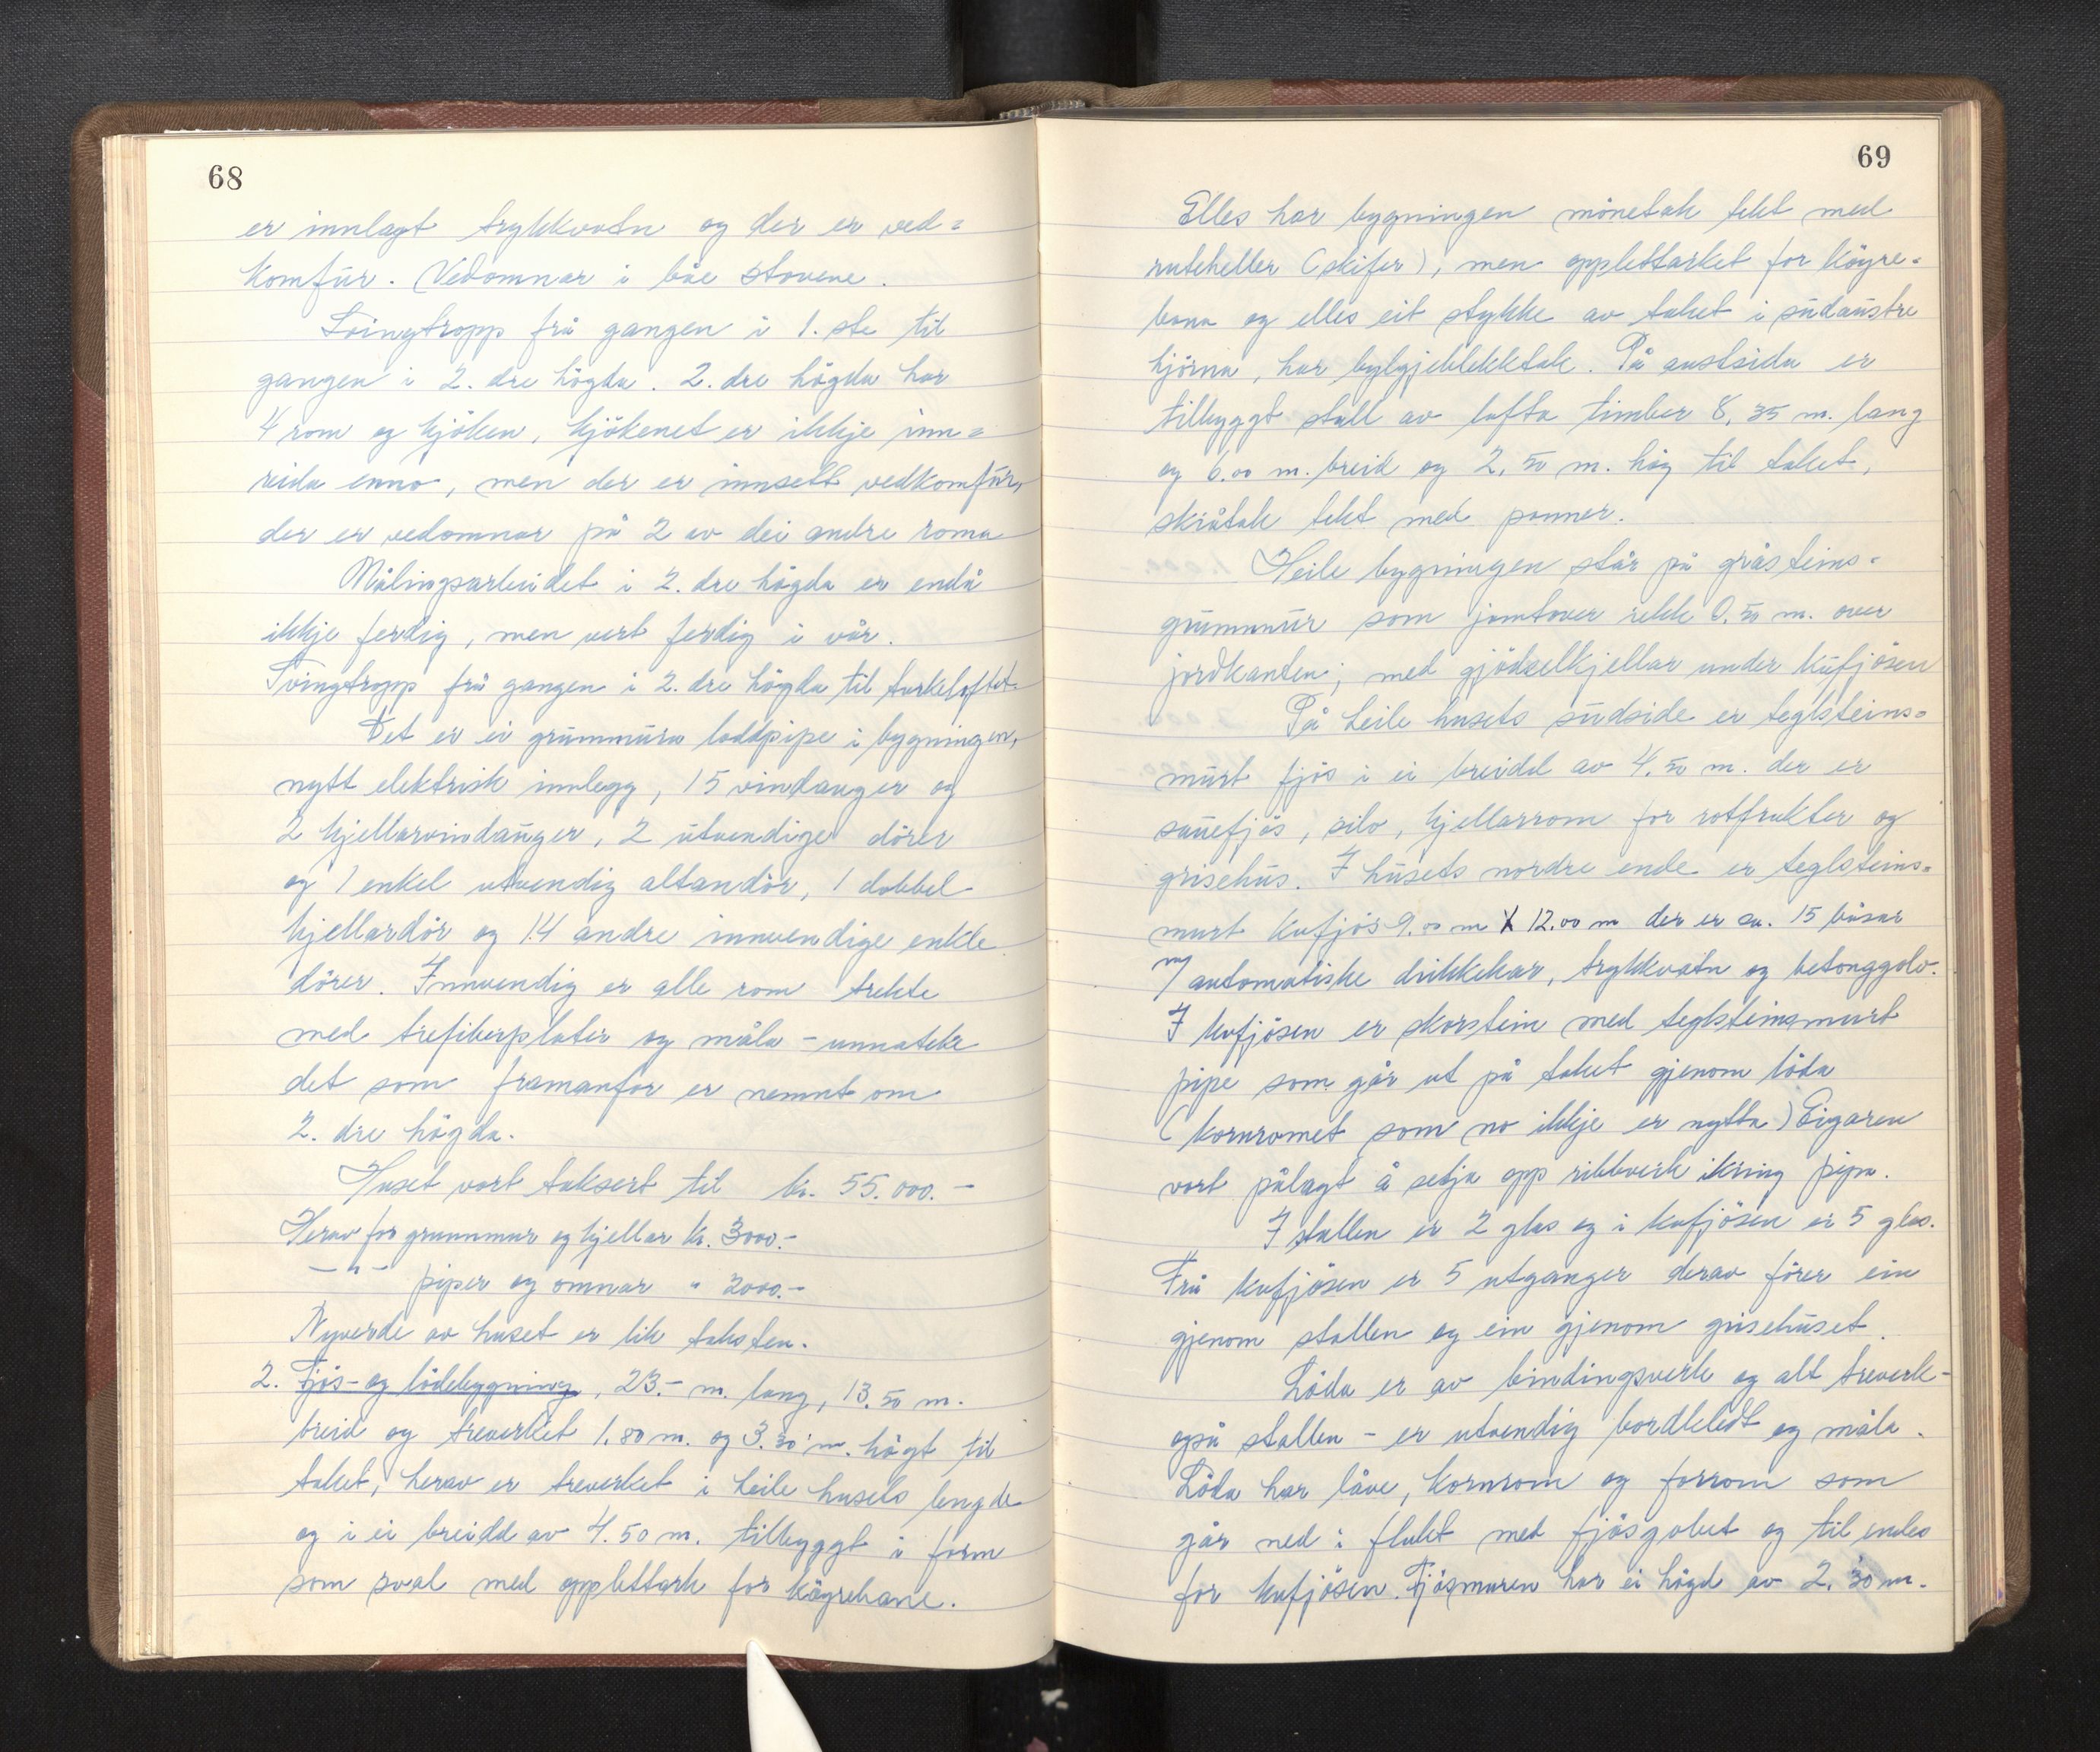 68
er innlagt trykkvatn og der er ved=
komfür. Vedomnar i båe stovene.
Svingtropp frå gangen i 1.ste til
gangen i 2. dre högda. 2. dre högda har
4 rom og kjöken, kjökenet er ikkje inn=
reida enno, men der er innsett vedkomfür,
der er vedomnar på 2 av dei andre roma
Målingsarbeidet i 2. dre högda er endå
ikkje ferdig, men vert ferdig i vår.
Svingtropp frå gangen i 2. dre högda til turkeloftet.
Det er ei grunnmüra loddpipe i bygningen,
nytt elektrisk innlegg, 15 vindauger og
2 kjellarvindaüger, 2 ütvendige dörer
og 1 enkel utvendig altandör, 1 dobbel
kjellardör og 14 andre innvendige enkle
dörer. Innvendig er alle rom trekte
med trefiberplater og måla - unnateke
det som framanfor er nemnt om
2. dre högda.
Huset vart taksert til kr. 55.000.-
Herav for grunnmur og kjellar kr. 3000.-
-"- piper og omnar " 2000.-
Nyverde av huset er lik taksten.
2. Fjös- og lödebygning, 23.- m. lang, 13.50 m.
breid og treverket 1.80 m. og 3.30 m. högt til
taket, herav er treverket i heile husets lengde
og i ei breidd av 4.50 m. tilbyggt i form
som sval med opplettark for köyrebane.
69
Elles har bygningen mönetak tekt med
ruteheller (skifer), men opplettarket for köyre=
bana og elles eit stykke av taket i südaüstre
hjörna, har bylgjeblekktak. På austsida er
tilbyggt stall av lafta timber 8,35 m. lang
og 6.00 m. breid og 2,50 m. høg til taket,
skråtak tekt med panner.
Heile bygningen står på gråsteins=
grunnmür som jamtover rekk 0.50 m. over
jordkanten; med gjödselkjellar under küfjösen
På heile husets südside er teglsteins=
mürt fjös i ei breidd av 4.50 m. der er
sauefjös, silo, kjellarrom for rotfrukter og
grisehüs. I hüsets nordre ende er teglsteins=
murt kufjös 9.00 m X 12.00 m der er ca. 15 båsar
m/ automatiske drikkekar, trykkvatn og betonggolv.
I kufjösen er skorstein med teglsteinsmurt
pipe som går ut på taket gjenom löda
(kornromet som no ikkje er nytta) Eigaren
vart pålagt å setja opp ribbverk ikring pipa.
I stallen er 2 glas og i kufjösen er 5 glas.
Frå kufjösen er 5 utganger derav förer ein
gjenom stallen og ein gjenom grisehüset.
Löda er av bindingsverk og alt treverk-
også stallen - er utvendig bordkledt og måla.
Löda har låve, kornrom og forrom som
går ned i flukt med fjösgolvet og til endes
for kufjösen. Fjösmuren har ei högd av 2.30 m.